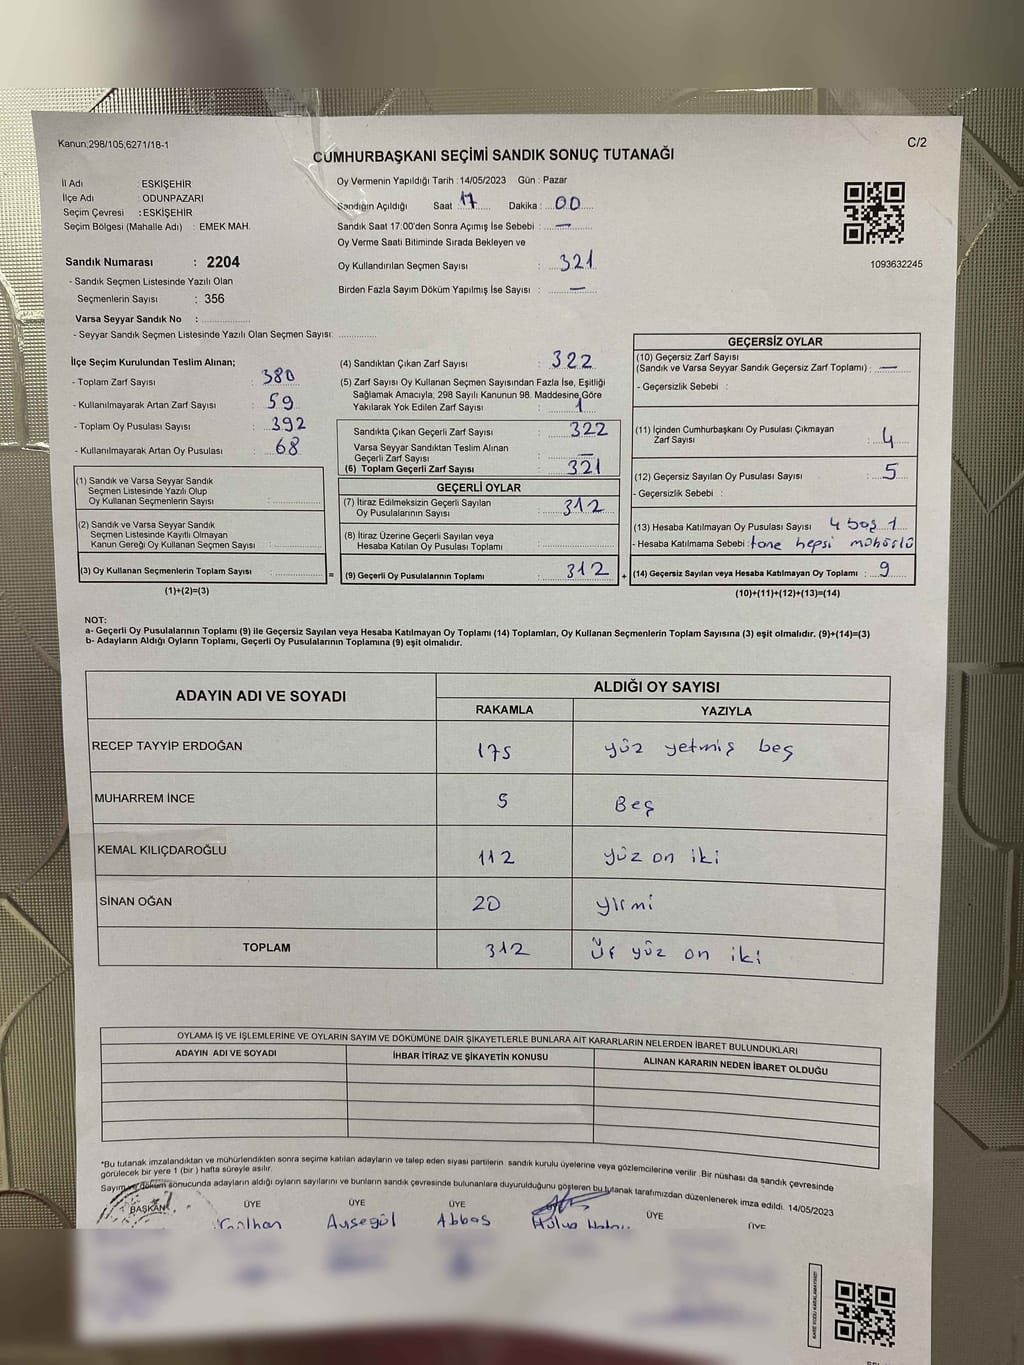 Kanun;298/105,6271/18-1
C/2
CUMHURBAŞKANI SEÇİMİ SANDIK SONUÇ TUTANAĞI
İl Adı : ESKİŞEHİR
İlçe Adı : ODUNPAZARI
Seçim Çevresi : ESKİŞEHİR
Seçim Bölgesi (Mahalle Adı) : EMEK MAH.
Sandık Numarası : 2204
- Sandık Seçmen Listesinde Yazılı Olan
Seçmenlerin Sayısı : 356
Varsa Seyyar Sandık No :
- Seyyar Sandık Seçmen Listesinde Yazılı Olan Seçmen Sayısı:
Oy Vermenin Yapıldığı Tarih : 14/05/2023 Gün : Pazar
Sandığın Açıldığı Saat 17 Dakika : 00
Sandık Saat 17:00'den Sonra Açımış İse Sebebi : —
Oy Verme Saati Bitiminde Sırada Bekleyen ve
Oy Kullandırılan Seçmen Sayısı : 321
Birden Fazla Sayım Döküm Yapılmış İse Sayısı : —
1093632245
İlçe Seçim Kurulundan Teslim Alınan;
- Toplam Zarf Sayısı : 380
- Kullanılmayarak Artan Zarf Sayısı : 59
- Toplam Oy Pusulası Sayısı : 392
- Kullanılmayarak Artan Oy Pusulası : 68
(1) Sandık ve Varsa Seyyar Sandık
Seçmen Listesinde Yazılı Olup
Oy Kullanan Seçmenlerin Sayısı :
(2) Sandık ve Varsa Seyyar Sandık
Seçmen Listesinde Kayıtlı Olmayan
Kanun Gereği Oy Kullanan Seçmen Sayısı :
(3) Oy Kullanan Seçmenlerin Toplam Sayısı :
=
(1)+(2)=(3)
(4) Sandıktan Çıkan Zarf Sayısı : 322
(5) Zarf Sayısı Oy Kullanan Seçmen Sayısından Fazla İse, Eşitliği
Sağlamak Amacıyla; 298 Sayılı Kanunun 98. Maddesine Göre
Yakılarak Yok Edilen Zarf Sayısı : 1
Sandıkta Çıkan Geçerli Zarf Sayısı : 322
Varsa Seyyar Sandıktan Teslim Alınan
Geçerli Zarf Sayısı : —
(6) Toplam Geçerli Zarf Sayısı : 321
GEÇERLİ OYLAR
(7) İtiraz Edilmeksizin Geçerli Sayılan
Oy Pusulalarının Sayısı : 312
(8) İtiraz Üzerine Geçerli Sayılan veya
Hesaba Katılan Oy Pusulası Toplamı :
(9) Geçerli Oy Pusulalarının Toplamı : 312
+
GEÇERSİZ OYLAR
(10) Geçersiz Zarf Sayısı
(Sandık ve Varsa Seyyar Sandık Geçersiz Zarf Toplamı) : —
- Geçersizlik Sebebi :
(11) İçinden Cumhurbaşkanı Oy Pusulası Çıkmayan
Zarf Sayısı : 4
(12) Geçersiz Sayılan Oy Pusulası Sayısı : 5
- Geçersizlik Sebebi :
(13) Hesaba Katılmayan Oy Pusulası Sayısı 4 boş 1
- Hesaba Katılmama Sebebi : tane hepsi mühürlü
(14) Geçersiz Sayılan veya Hesaba Katılmayan Oy Toplamı : 9
(10)+(11)+(12)+(13)=(14)
NOT:
a- Geçerli Oy Pusulalarının Toplamı (9) ile Geçersiz Sayılan veya Hesaba Katılmayan Oy Toplamı (14) Toplamları, Oy Kullanan Seçmenlerin Toplam Sayısına (3) eşit olmalıdır. (9)+(14)=(3)
b- Adayların Aldığı Oyların Toplamı, Geçerli Oy Pusulalarının Toplamına (9) eşit olmalıdır.
ADAYIN ADI VE SOYADI ALDIĞI OY SAYISI
RAKAMLA YAZIYLA
RECEP TAYYİP ERDOĞAN 175 yüz yetmiş beş
MUHARREM İNCE 5 Beş
KEMAL KILIÇDAROĞLU 112 yüz on iki
SİNAN OĞAN 20 yirmi
TOPLAM 312 Üç yüz on iki
OYLAMA İŞ VE İŞLEMLERİNE VE OYLARIN SAYIM VE DÖKÜMÜNE DAİR ŞİKAYETLERLE BUNLARA AİT KARARLARIN NELERDEN İBARET BULUNDUKLARI
ADAYIN ADI VE SOYADI İHBAR İTİRAZ VE ŞİKAYETİN KONUSU ALINAN KARARIN NEDEN İBARET OLDUĞU
*Bu tutanak imzalandıktan ve mühürlendikten sonra seçime katılan adayların ve talep eden siyasi partilerin sandık kurulu üyelerine veya gözlemcilerine verilir. Bir nüshası da sandık çevresinde
görülecek bir yere 1 (bir ) hafta süreyle asılır.
Sayım ve döküm sonucunda adayların aldığı oyların sayılarını ve bunların sandık çevresinde bulunanlara duyurulduğunu gösteren bu tutanak tarafımızdan düzenlenerek imza edildi. 14/05/2023
BAŞKAN ÜYE ÜYE ÜYE ÜYE ÜYE
Ayşegül Abbas Hülya